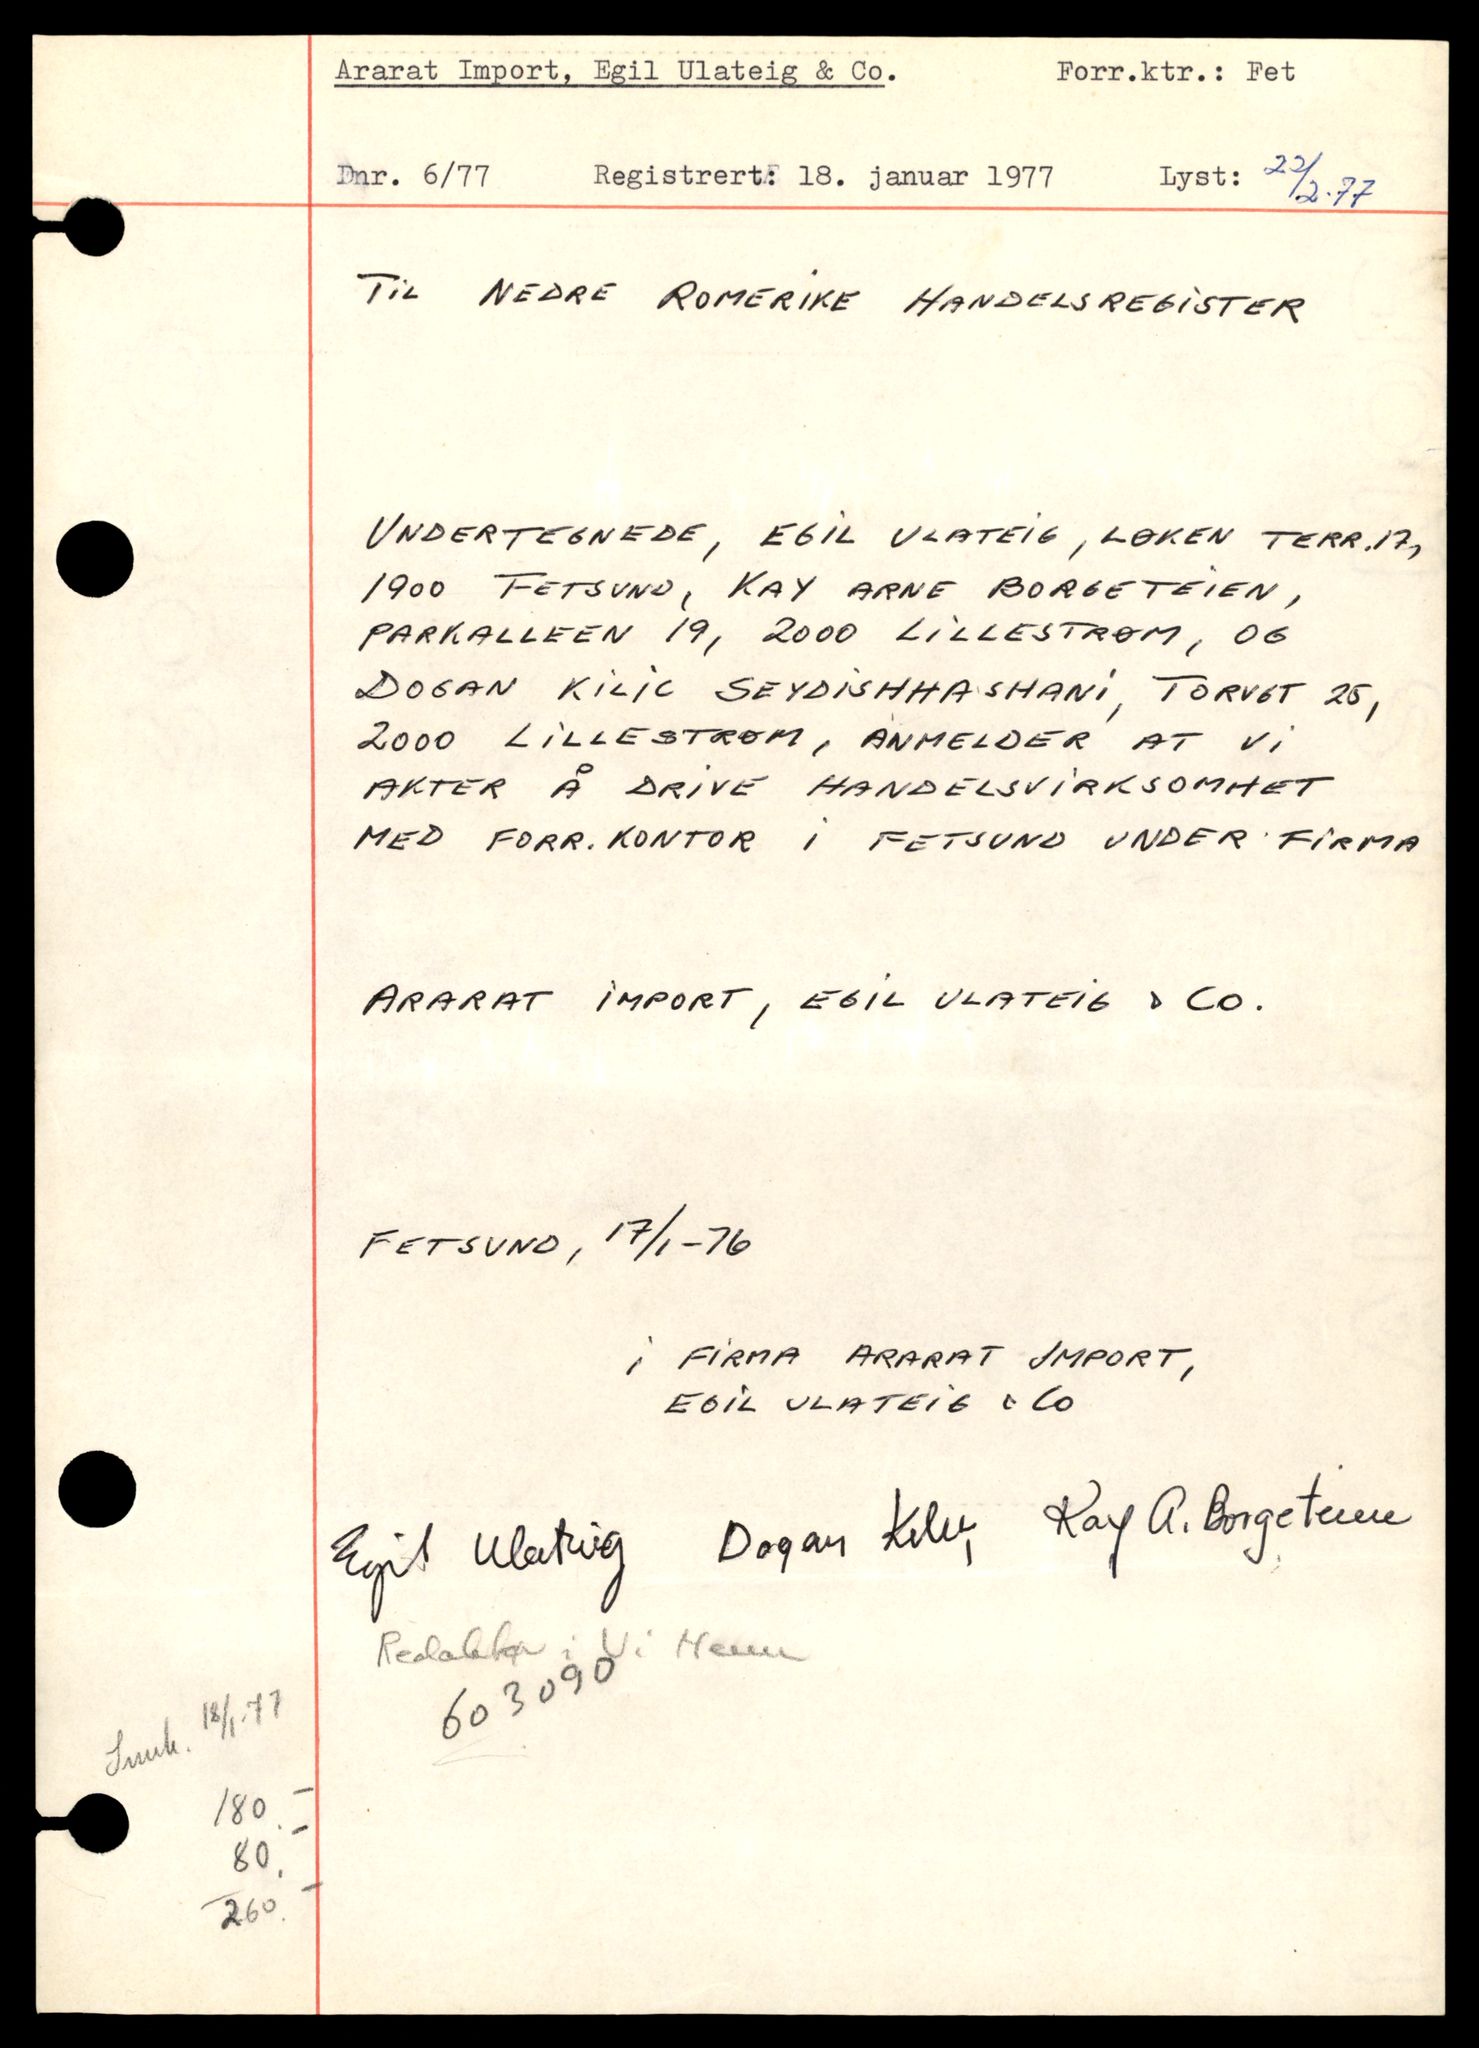 Ararat Import, Egil Ulateig & Co. Forr.ktr.: Fet
Dnr. 6/77 Registrert: 18. januar 1977 Lyst: 22/2-77
TIL NEDRE ROMERIKE HANDELSREGISTER
UNDERTEGNEDE, EGIL ULATEIG, LØKEN TERR.17,
1900 FETSUND, KAY ARNE BORGETEIEN,
PARKALLEEN 19, 2000 LILLESTRØM, OG
DOGAN KILIC SEYDISHHASHANI, TORVGT 25,
2000 LILLESTRØM, ANMELDER AT VI
AKTER Å DRIVE HANDELSVIRKSOMHET
MED FORR.KONTOR I FETSUND UNDER FIRMA
ARARAT IMPORT, EGIL ULATEIG & CO.
FETSUND, 17/1-76
I FIRMA ARARAT IMPORT,
EGIL ULATEIG & CO
Egil Ulateig Dogan Kilic Kay A. Borgeteien
Redaktør i Vi Menn
603090
18/1-77
180.-
80.-
260.-